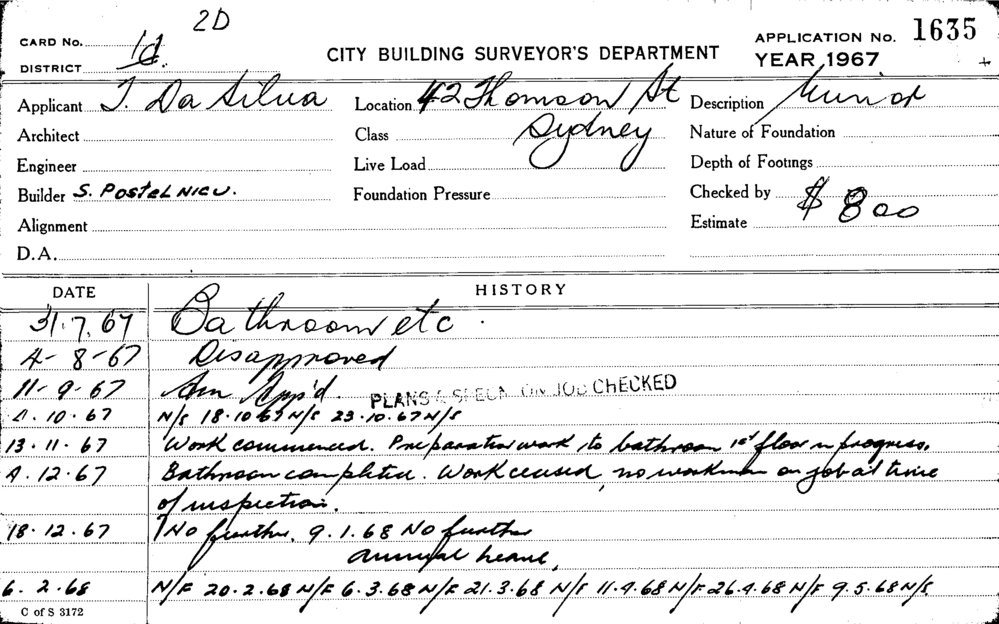 2D
CARD No. 1d
DISTRICT
CITY BUILDING SURVEYOR'S DEPARTMENT
APPLICATION No. 1635
YEAR 1967
Applicant J. Da Silva
Location 42 Thomson St Sydney
Description Minor
Architect
Class
Nature of Foundation
Engineer
Live Load
Depth of Footings
Builder S. POSTELNICU.
Foundation Pressure
Checked by
Alignment
Estimate $ 800
D.A.
DATE HISTORY
31.7.67 Bathroom etc.
4-8-67 Disapproved
11-9-67 Am App'd. PLANS & SPECN. ON JOB CHECKED
4.10.67 N/S 18.10.67 N/S 23.10.67 N/S
13.11.67 Work commenced. Preparation work to bathroom 1st floor in progress.
4.12.67 Bathroom completed. Work ceased, no workman on job at time
of inspection.
18.12.67 No further. 9.1.68 No further
annual leave,
6.2.68 N/F 20.2.68 N/F 6.3.68 N/F 21.3.68 N/F 11.4.68 N/F 26.4.68 N/F 9.5.68 N/F.
C of S 3172